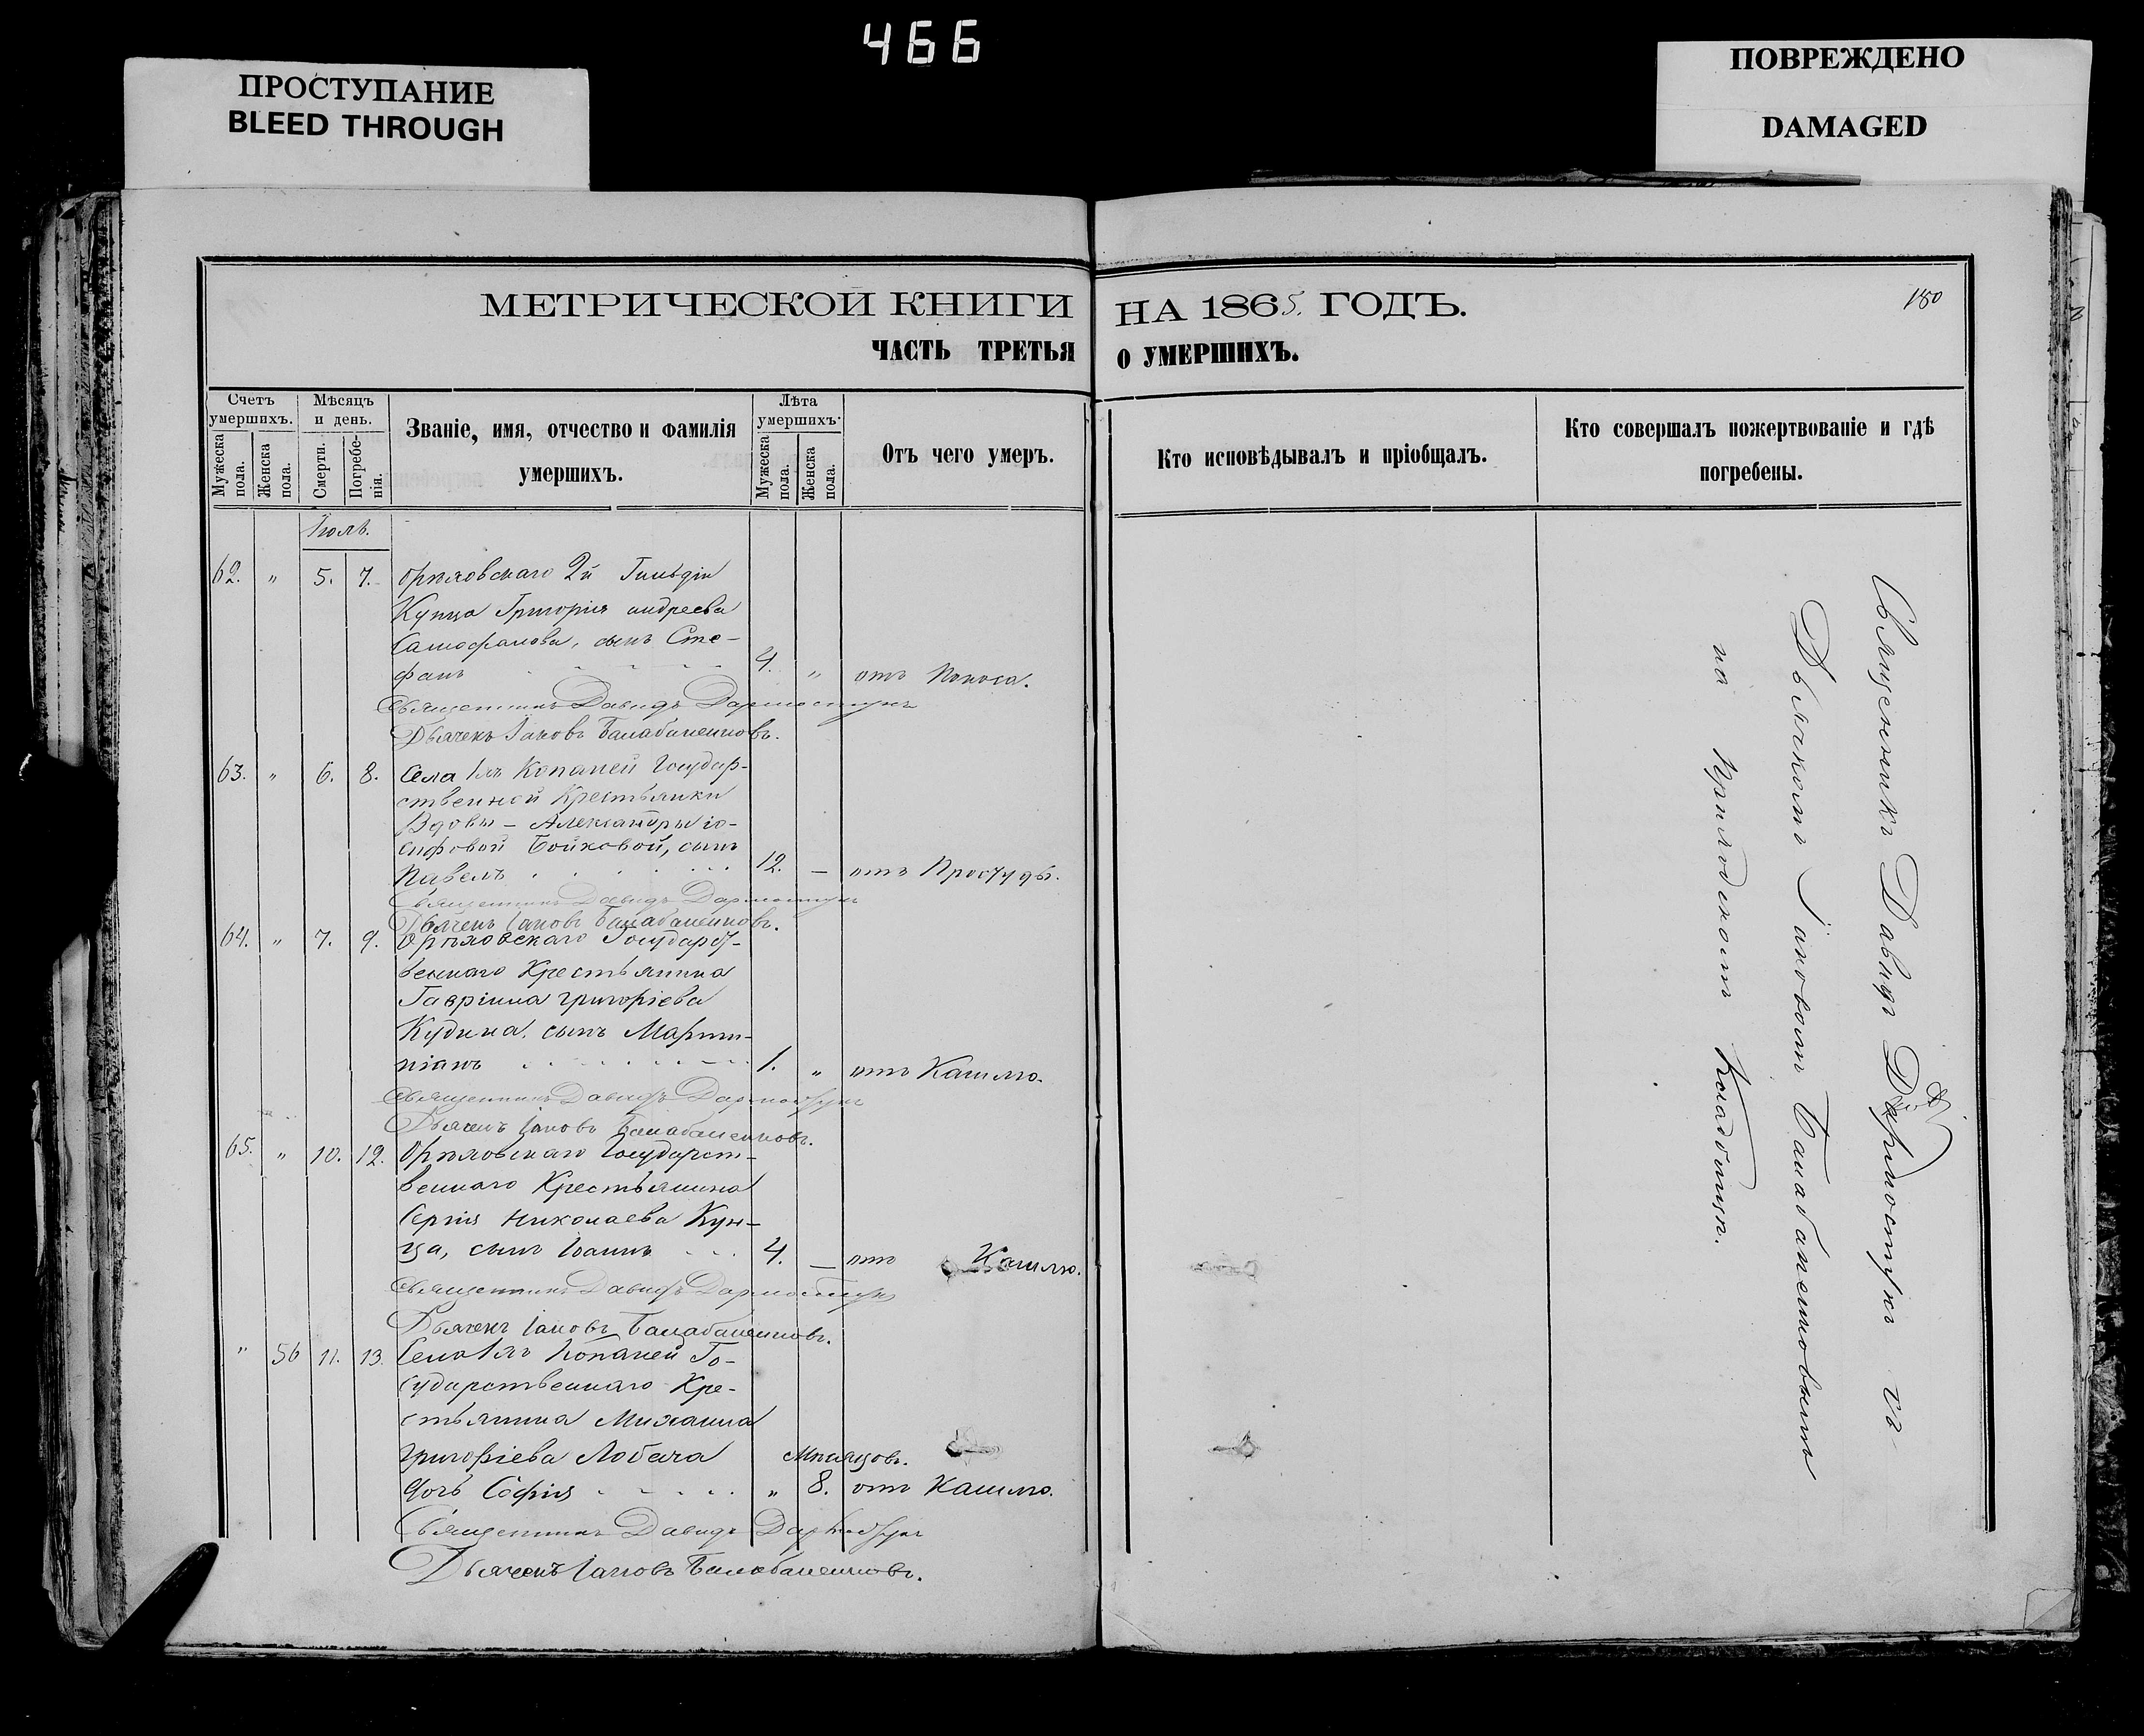 466
ПРОСТУПАНИЕ
BLEED THROUGH
ПОВРЕЖДЕНО
DAMAGED
МЕТРИЧЕСКОЙ КНИГИ НА 1865. ГОДЪ.
180
ЧАСТЬ ТРЕТЬЯ О УМЕРШИХЪ.
Счетъ умершихъ.
Мужеска пола.
Женска пола.
Мѣсяцъ и день.
Смерти.
Погребенія.
Званіе, имя, отчество и фамилія
умершихъ.
Лѣта умершихъ:
Мужеска пола.
Женска пола.
Отъ чего умеръ.
Кто исповѣдывалъ и пріобщалъ.
Кто совершалъ пожертвованіе и гдѣ
погребены.
Іюль.
62. " 5. 7. Орѣховскаго 2й Гильдіи
Купца Григорія андреева
сынъ Сте-
фанъ 4. " отъ Поноса.
Священникъ Давидъ
Дьячекъ Іаковъ Балабаненковъ.
63. " 6. 8. Села Копаней Государ-
ственной Крестьянки
Вдовы - Александры іо-
сифовой Бойковой, сынъ
Павелъ 12. - отъ Простуды.
Священникъ Давидъ
Дьячекъ Іаковъ Балабаненковъ.
64. " 7. 9. Орѣховскаго Государст-
веннаго Крестьянина
Гавріила григоріева
Кудина. сынъ Марти-
ніанъ 1. " отъ Кашлю.
Священникъ Давидъ
Дьячекъ Іаковъ Балабаненковъ.
65. " 10. 12. Орѣховскаго Государст-
веннаго Крестьянина
Сергія Николаева Кун-
ца, сынъ Іоаннъ 4. - отъ Кашлю.
Священникъ Давидъ
Дьячекъ Іаковъ Балабаненковъ.
" 56 11. 13. Села Копаней Го-
сударственнаго Кре-
стьянина Михаила
григоріева Лобача Мѣсяцовъ.
дочь Софія " 8. отъ Кашлю.
Священникъ Давидъ
Дьячекъ Іаковъ Балабаненковъ.
Священникъ Давидъ съ
Дьячкомъ Іаковомъ Балабаненковымъ
на Приходскомъ Кладбищѣ.